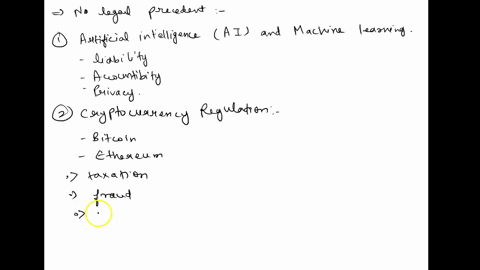 ⇒ No legal precedent :-
① Artificial intelligence (AI) and Machine learning.
- liability
- Accountibity
- Privacy.
② Cryptocurrency Regulation:-
- Bitcoin
- Ethereum
⇒ taxation
⇒ fraud
⇒